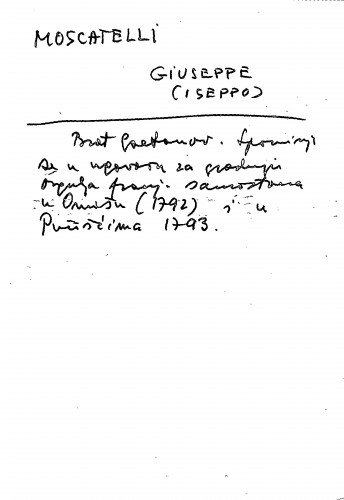 MOSCATELLI
GIUSEPPE
(ISEPPO)
Brat Gaetanov. Spominje
se u ugovoru za gradnju
orgulja franj. samostana
u Omišu (1792) i u
Pučišćima 1793.